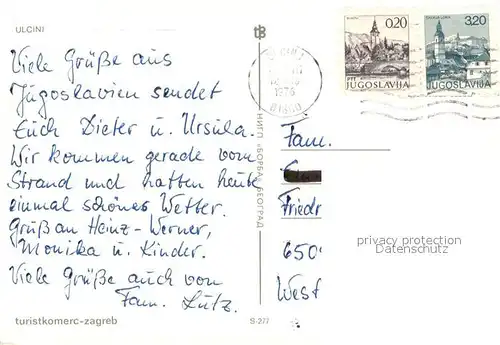 ULCINJ
Viele Grüße aus
Jugoslavien sendet
Euch Dieter u. Ursula.
Wir kommen gerade vom
Strand und hatten heute
einmal schönes Wetter.
Gruß an Heinz-Werner,
Monika u. Kinder.
Viele Grüße auch von
Fam. Lutz.
turistkomerc-zagreb
S-277
НИГП «БОРБА» БЕОГРАД
0,20
JUGOSLAVIJA
3,20
JUGOSLAVIJA
1976
Fam.
Friedr
650
West
privacy protection
Datenschutz